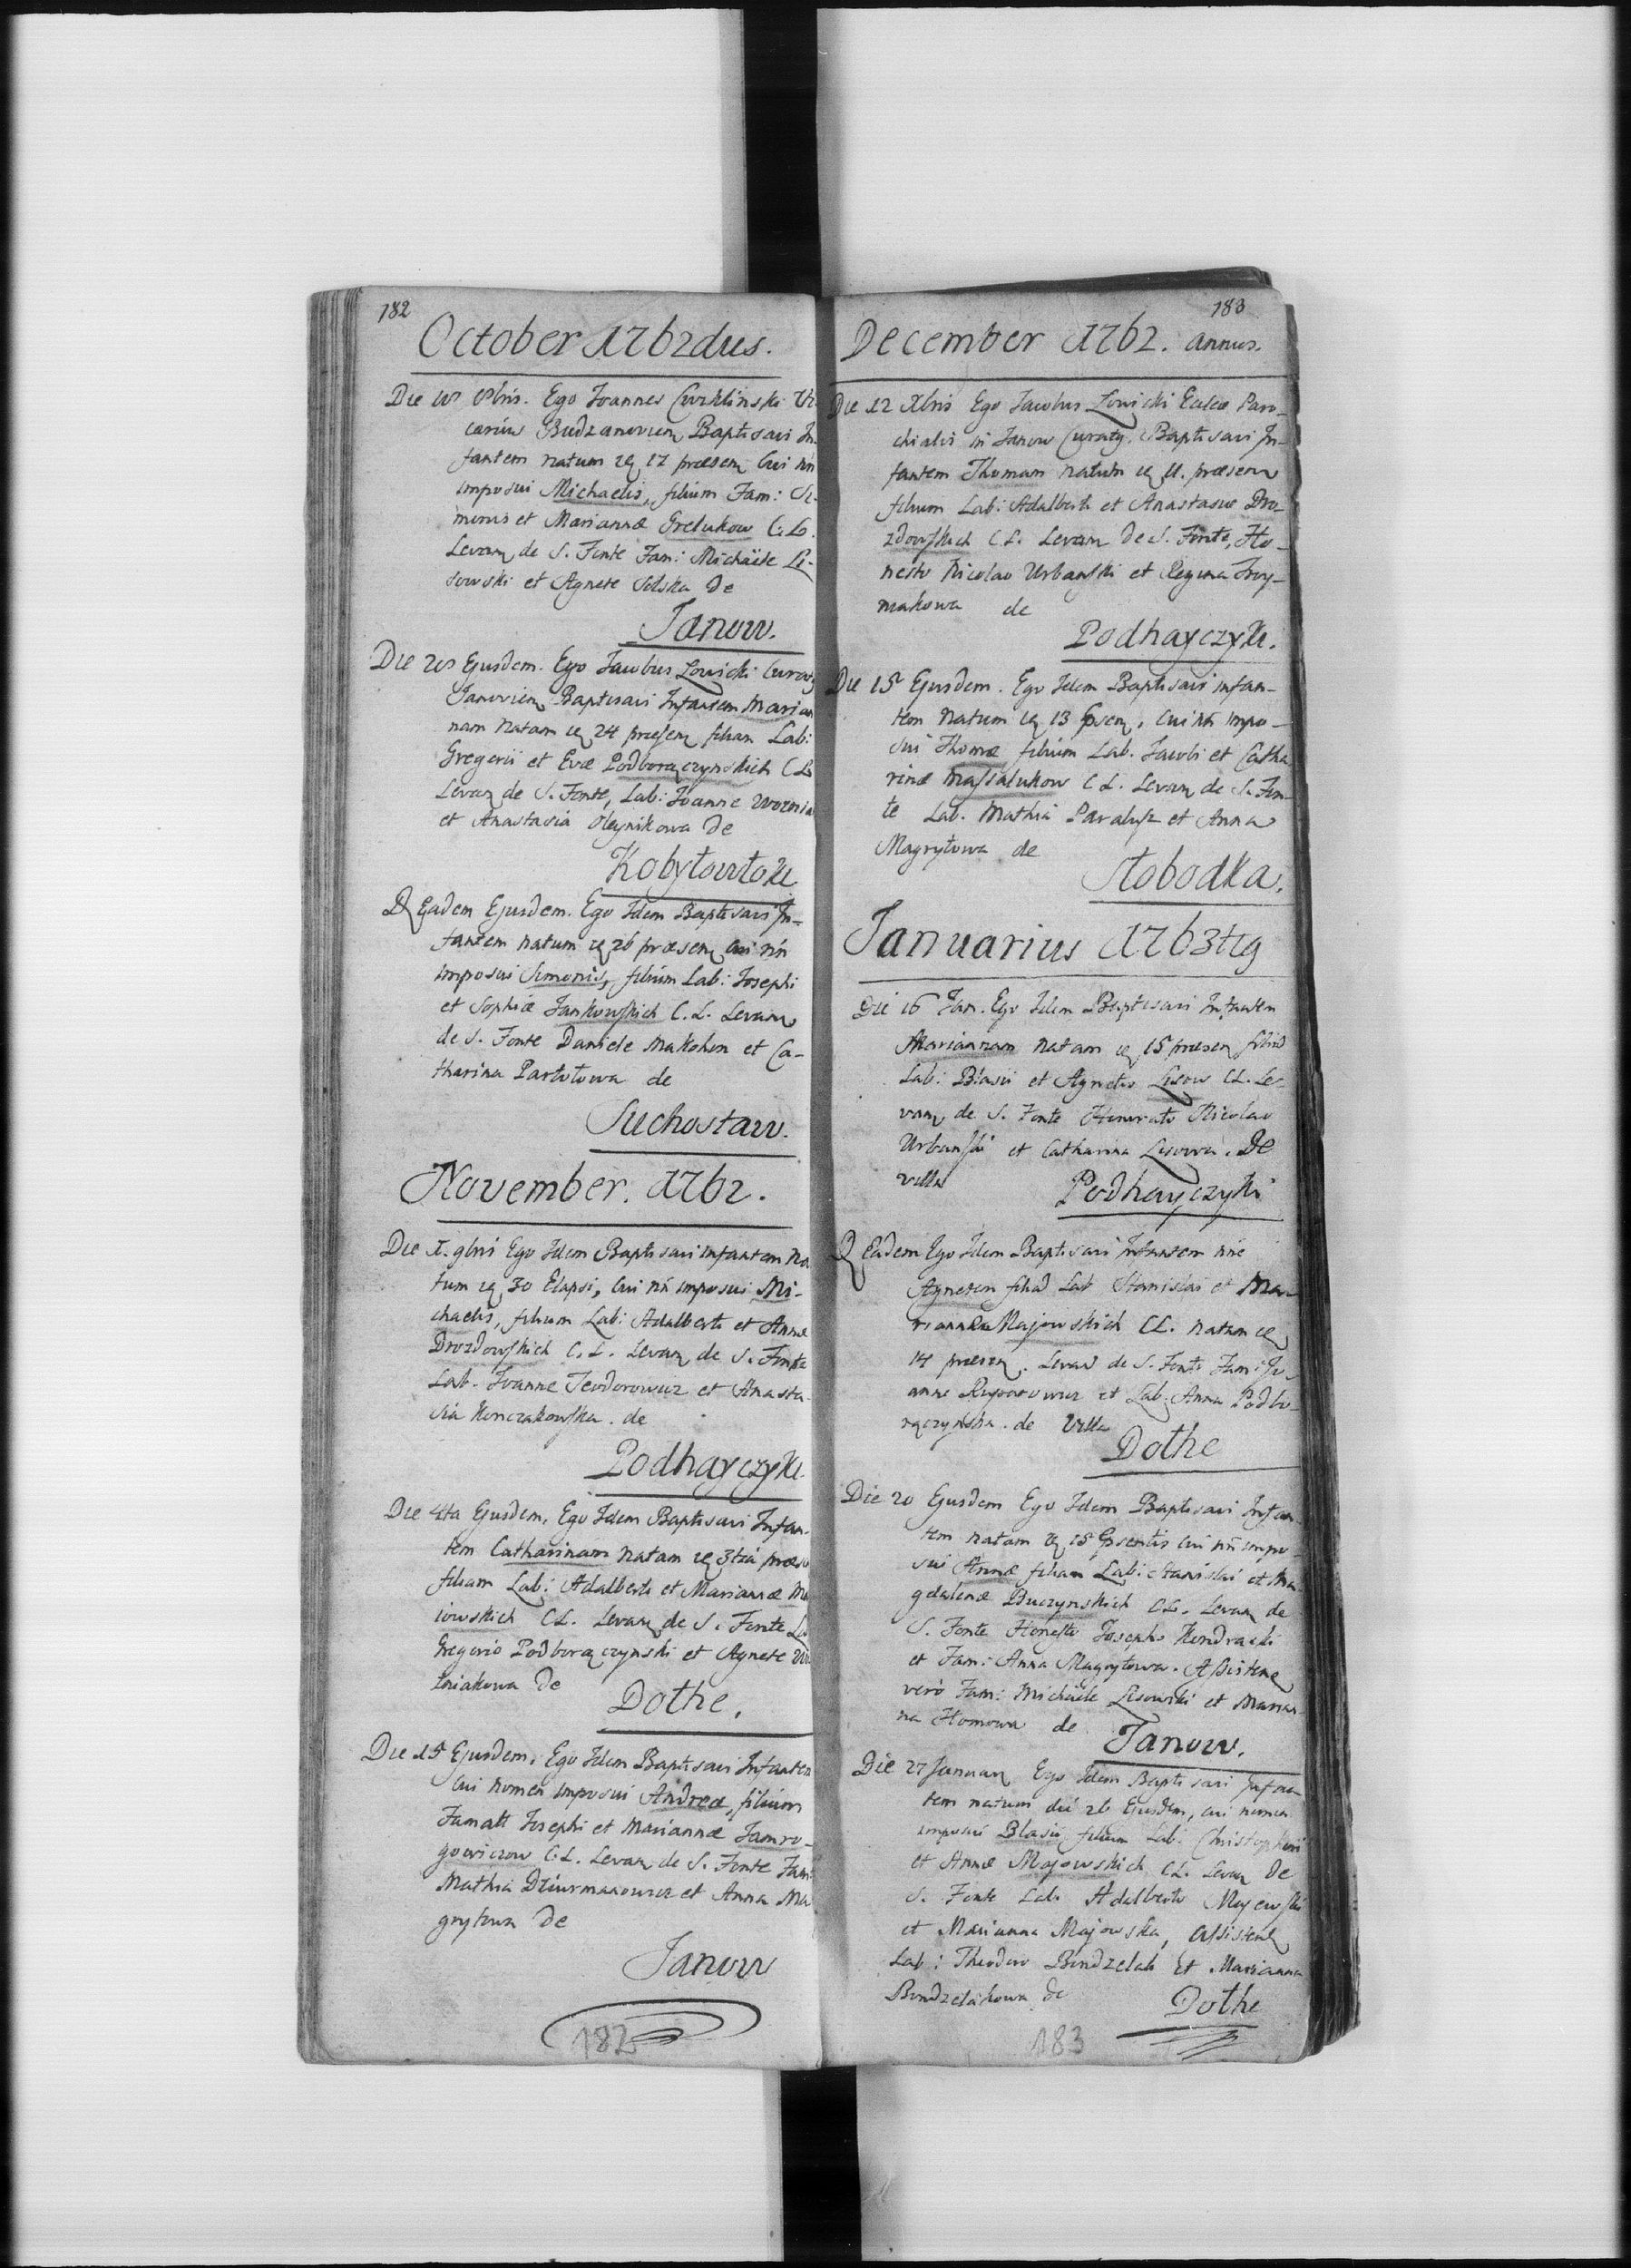 182
October 1762dus.
Die 8bris. Ego Joannes Vi-
carius Budzanovien Baptisavi In-
fantem natum 17 praesen cui nn
imposui Michaelis, filium Fam: Si-
meonis et Mariannæ Grelukow C. L.
Levan de S. Fonte Fam: Michaële Li-
sowski et Agnete Solska de
Janow.
Die Ejusdem. Ego Jacobus Lowicki Curat
Janovien Baptisavi Infantem Marian
nam natam 24 praesen filiam Lab:
Gregorii et Evæ Podborączynskich C L
Levan de S. Fonte, Lab: Joanne Wozniak
et Anastasia Oleynikowa de
Kobyłowłoki
D Eadem Ejusdem. Ego Idem Baptisavi In-
fantem natum 26 praesen cui nn
imposui Simonis, filium Lab: Josephi
et Sophiæ Jankowskich C. L. Levan
de S. Fonte Daniele Makohon et Ca-
tharina de
Suchostaw.
November. 1762.
Die 1. 9bris Ego Idem Baptisavi infantem na
tum 30 Elapsi, cui nn imposui Mi-
chaelis, filium Lab: Adalberti et Annæ
Drozdowskich C. L. Levan de S. Fonte
Lab. Joanne Teodorowicz et Anasta-
sia Konczakowska. de
Podhayczyki
Die 4ta Ejusdem. Ego Idem Baptisavi Infan-
tem Catharinam natam 3tia praese
filiam Lab: Adalberti et Mariannæ Ma
iowskich CL. Levan de S. Fonte La
Gregorio Podborączynski et Agnete
de
Dołhe.
Die 15 Ejusdem. Ego Idem Baptisavi Infantem
cui nomen imposui Andreæ, filium
Famati Josephi et Mariannæ Jamro-
gowiczow C. L. Levan de S. Fonte Fam:
Mathia et Anna Ma
grytowa de
Janow
182
183
December 1762. annus.
Die 12 Xbris Ego Jacobus Lowicki Eccl Paro-
chialis in Janow Curatq. Baptisavi In-
fantem Thomam natum 11. praesen
filium Lab: Adalberti et Anastasiæ Dro-
zdowskich C L. Levan de S. Fonte, Ho-
nesto Nicolao Urbanski et Regina Troy-
makowa de
Podhayczyki.
Die 15 Ejusdem. Ego Idem Baptisavi infan-
tem natum 13 psen, cui nn impo-
sui Thomæ filium Lab. Jacobi et Catha
rinæ Massalukow C L. Levan de S. Fon-
te Lab. Mathia et Anna
Magrytowa de
Słobodka.
Januarius 1763tiq
Die 16 Jan. Ego Idem Baptisavi Infantem
Mariannam natam 15 praesen filia
Lab: Blasii et Agnetis Lisow CL. Le-
van de S. Fonte Honorato Nicolao
Urbanski et Catharina Lisowa. De
villa
Podhayczyki
D Eadem Ego Idem Baptisavi Infantem nne
Agnetem filia Lab Stanislai et Ma-
riannæ Majowskich CL. natam
14 praesen. Levan de S. Fonte Fam: Jo-
anne et Lab: Anna Podbo-
rączynska. de Villa
Dołhe
Die 20 Ejusdem Ego Idem Baptisavi Infan-
tem natam 18 psentis cui nn impo-
sui Annæ filiam Lab: Stanislai et Ma-
gdalenæ Buczynskich CL. Levan de
S. Fonte Honesto Josepho Kendracki
et Fam: Anna Magrytowa. Assistene
vero Fam: Michaële Lisowski et Marian-
na Homowa de
Janow.
Die 27 Januar Ego Idem Baptisavi Infan-
tem natum die 26 Ejusdem, cui nomen
imposui Blasii filium Lab: Christophori
et Annæ Majowskich CL. Levan de
S. Fonte Lab: Adalberto Majewski
et Marianna Majowska, Assisten
Lab: Theodoro Bondzelak et Marianna
Bondzelakowa de
Dołhe
183